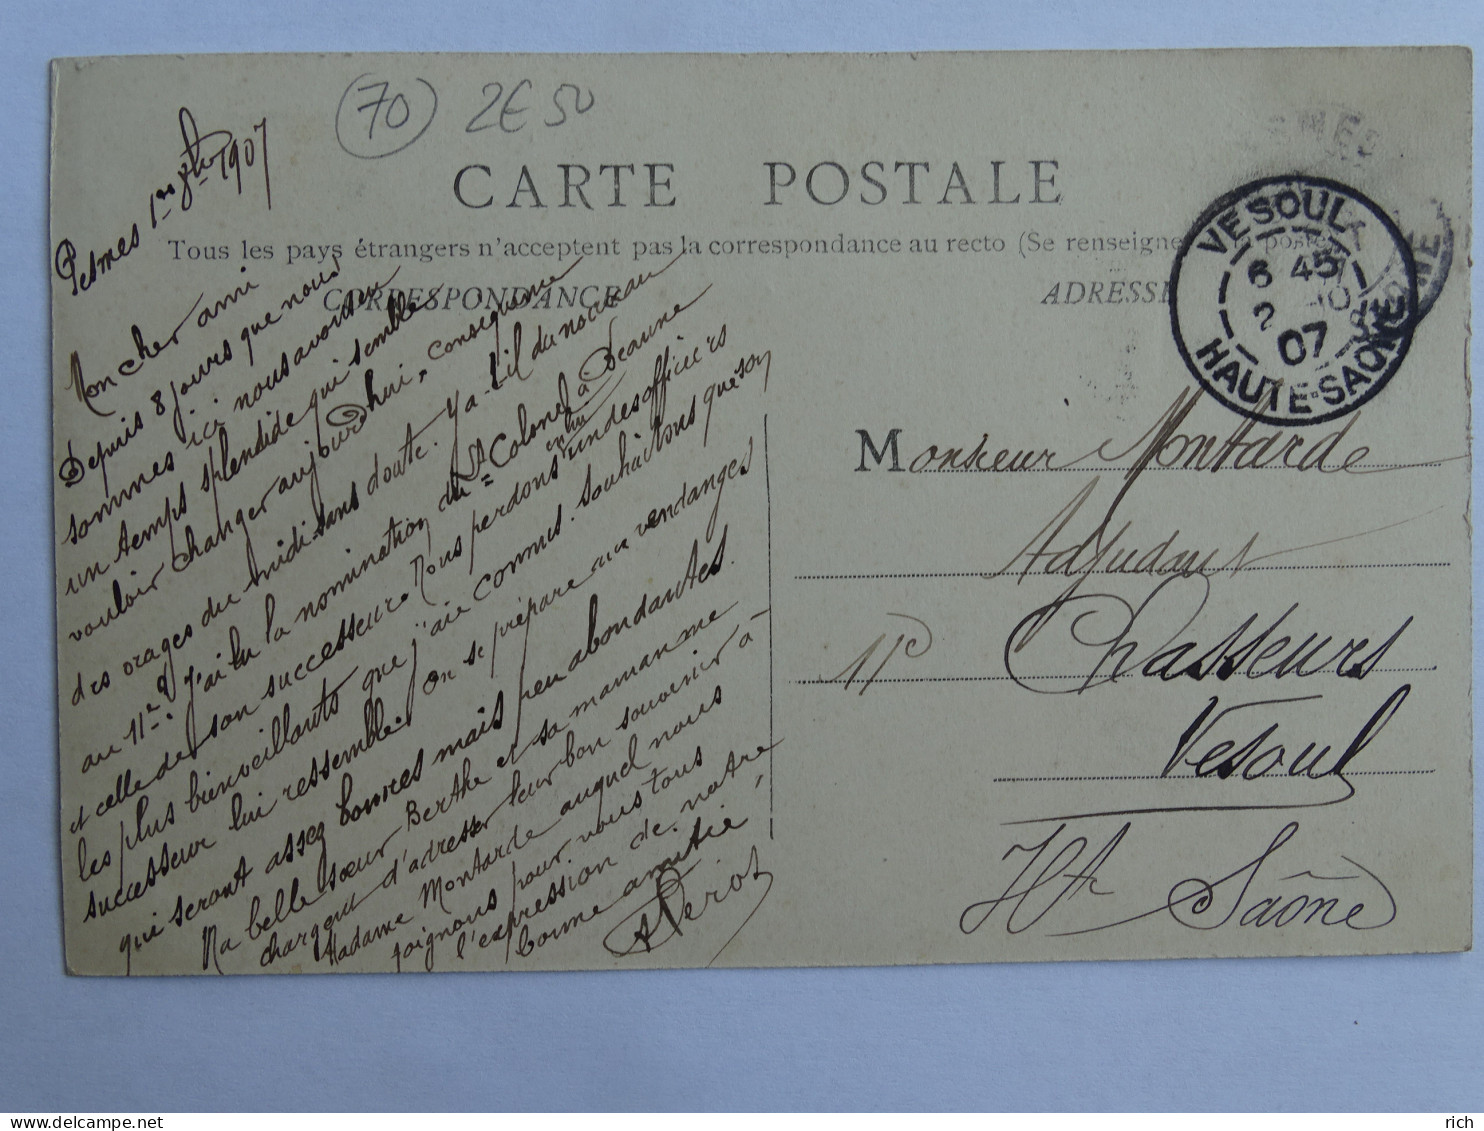 70 2€50
CARTE POSTALE
Tous les pays étrangers n'acceptent pas la correspondance au recto (Se renseigner à la poste)
CORRESPONDANCE
ADRESSE
VESOUL
6 45
2 10
07
HAUTE-SAONE
Pesmes 1er 8bre 1907
Mon cher ami
Depuis 8 jours que nous
sommes ici nous avons eu
un temps splendide qui semble
vouloir changer aujourd'hui, conséquence
des orages du midi sans doute. Y a-t-il du nouveau
au 11e? J'ai lu la nomination du Lt Colonel à Beaune
et celle de son successeur. Nous perdons en lui un des officiers
les plus bienveillants que j'aie connus. souhaitons que son
successeur lui ressemble. On se prépare aux vendanges
qui seront assez bonnes mais peu abondantes.
Ma belle soeur Berthe et sa maman me
chargent d'adresser leur bon souvenir à
Madame Montarde auquel nous
joignons pour vous tous
l'expression de notre
bonne amitié,
A Periot
Monsieur Montarde
Adjudant
11e Chasseurs
Vesoul
Hte Saône
rich